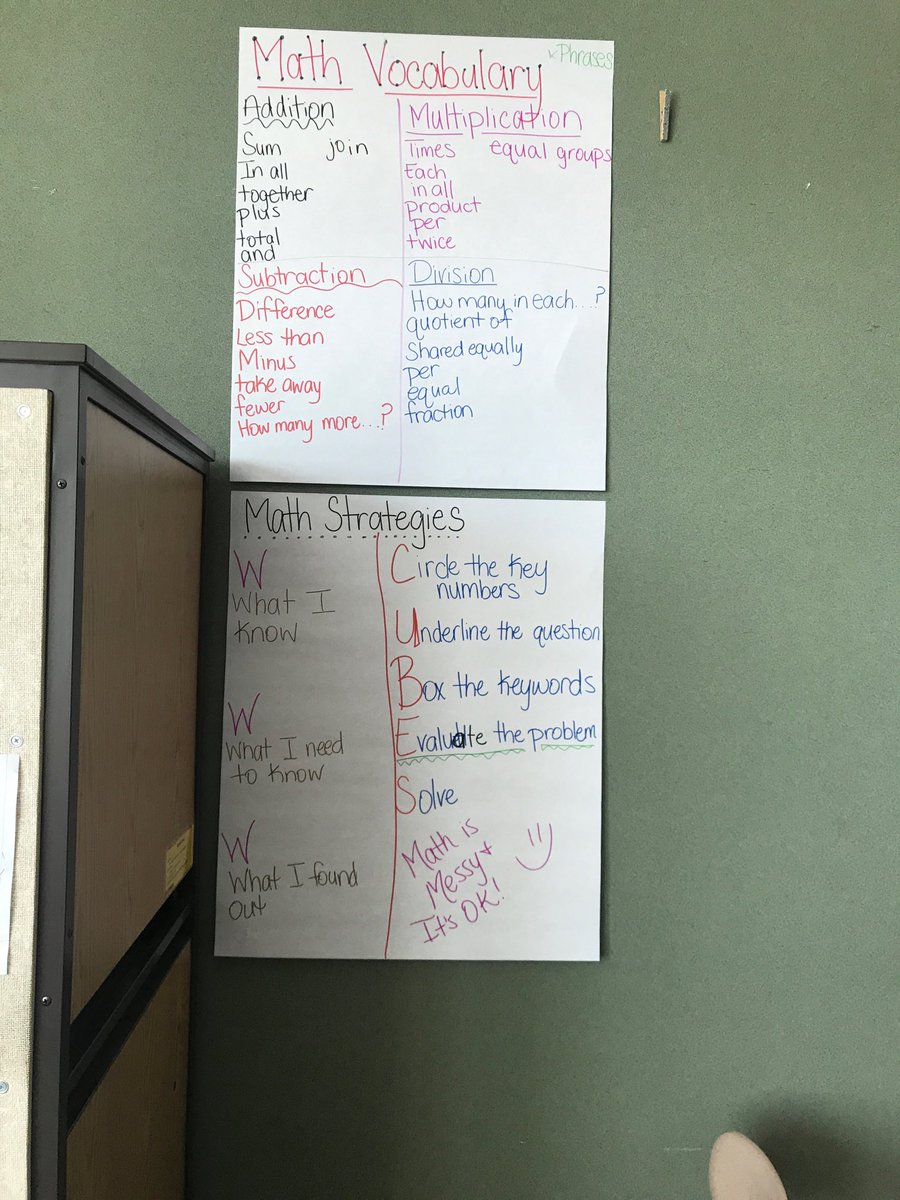 Math Vocabulary
& Phrases
Addition
Sum join
In all
together
plus
total
and
Multiplication
Times equal groups
Each
in all
product
per
twice
Subtraction
Difference
Less than
Minus
take away
fewer
How many more...?
Division
How many in each...?
quotient of
Shared equally
per
equal
fraction
Math Strategies
W
What I
know
W
What I need
to know
W
What I found
out
Circle the key
numbers
Underline the question
Box the keywords
Evaluate the problem
Solve
Math is
Messy +
It's OK!